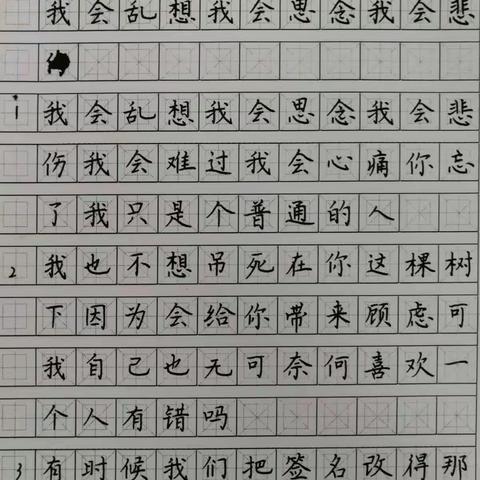 我会乱想我会思念我会悲
1 我会乱想我会思念我会悲
伤我会难过我会心痛你忘
了我只是个普通的人
2 我也不想吊死在你这棵树
下因为会给你带来顾虑可
我自己也无可奈何喜欢一
个人有错吗
3 有时候我们把签名改得那